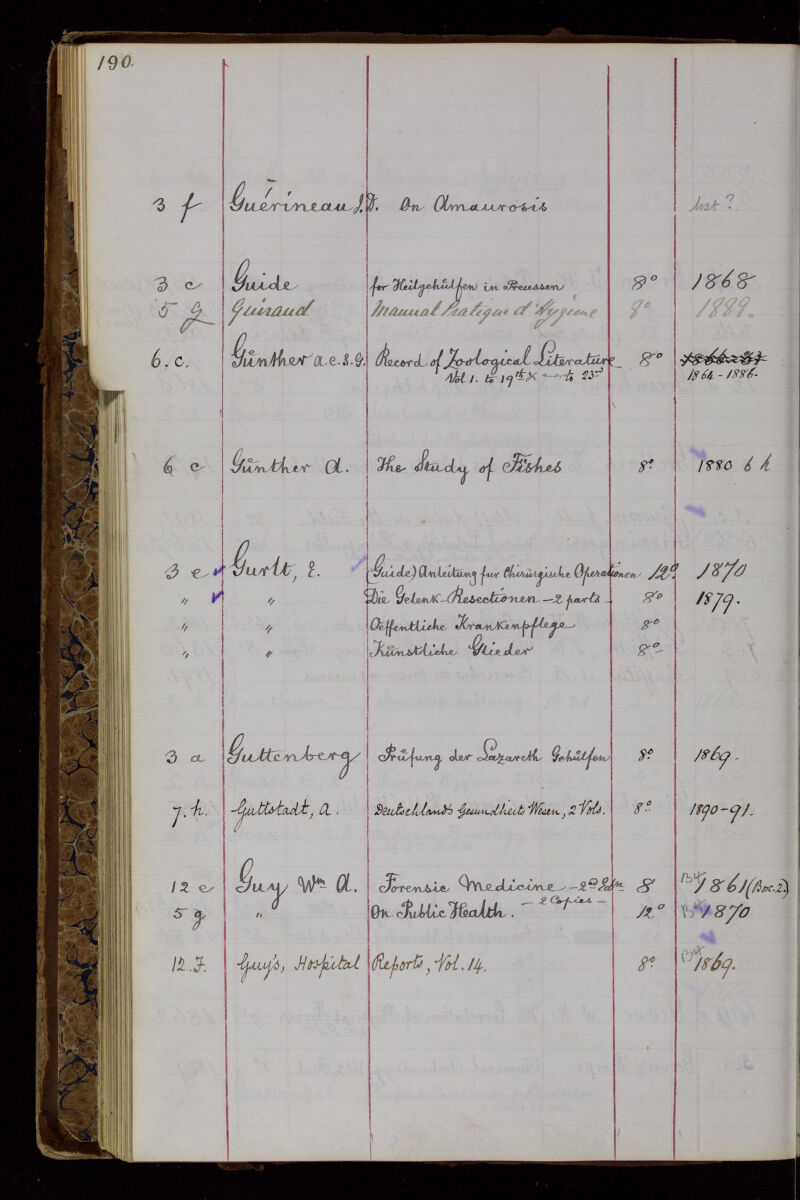 190.
3 f Guérineau J.D. On Amaurosis lost?
3 c Guide for Heilgehülfen in Preussen 8° 1868
5 g Guiraud Manual Pratique d'Hygiene 8° 1889.
6.c. Günther A.C.L.G. Record of Zoological Literature 8°
Vol 1. to 19th & to 23rd 1864-1886.
6 c Günther A. The Study of Fishes 8° 1880 6 h
3 e Gurlt, E. (Guide) Anleitung fur Chirurgische Operationen 12° 1870
" " Die Gelenk-Resectionen - 2 parts 8° 1879.
" " Oeffentliche Krankenpflege 8°
" " Künstliche Glieder 8°
3 a Guttenberg Prüfung der Lazareth Gehülfen 8° 1869.
7.h. Guttstadt, A. Deutschlands Gesundheits Wesen, 2 Vols. 8° 1890-91.
12 e Guy Wm A. Forensic Medicine - 2nd Edn 8 B4 1861 (Box.2.)
- 2 Copies -
5 g " On Public Health. 12° B4 1870
12.F. Guy's, Hospital Reports, Vol. 14. 8° B4 1869.